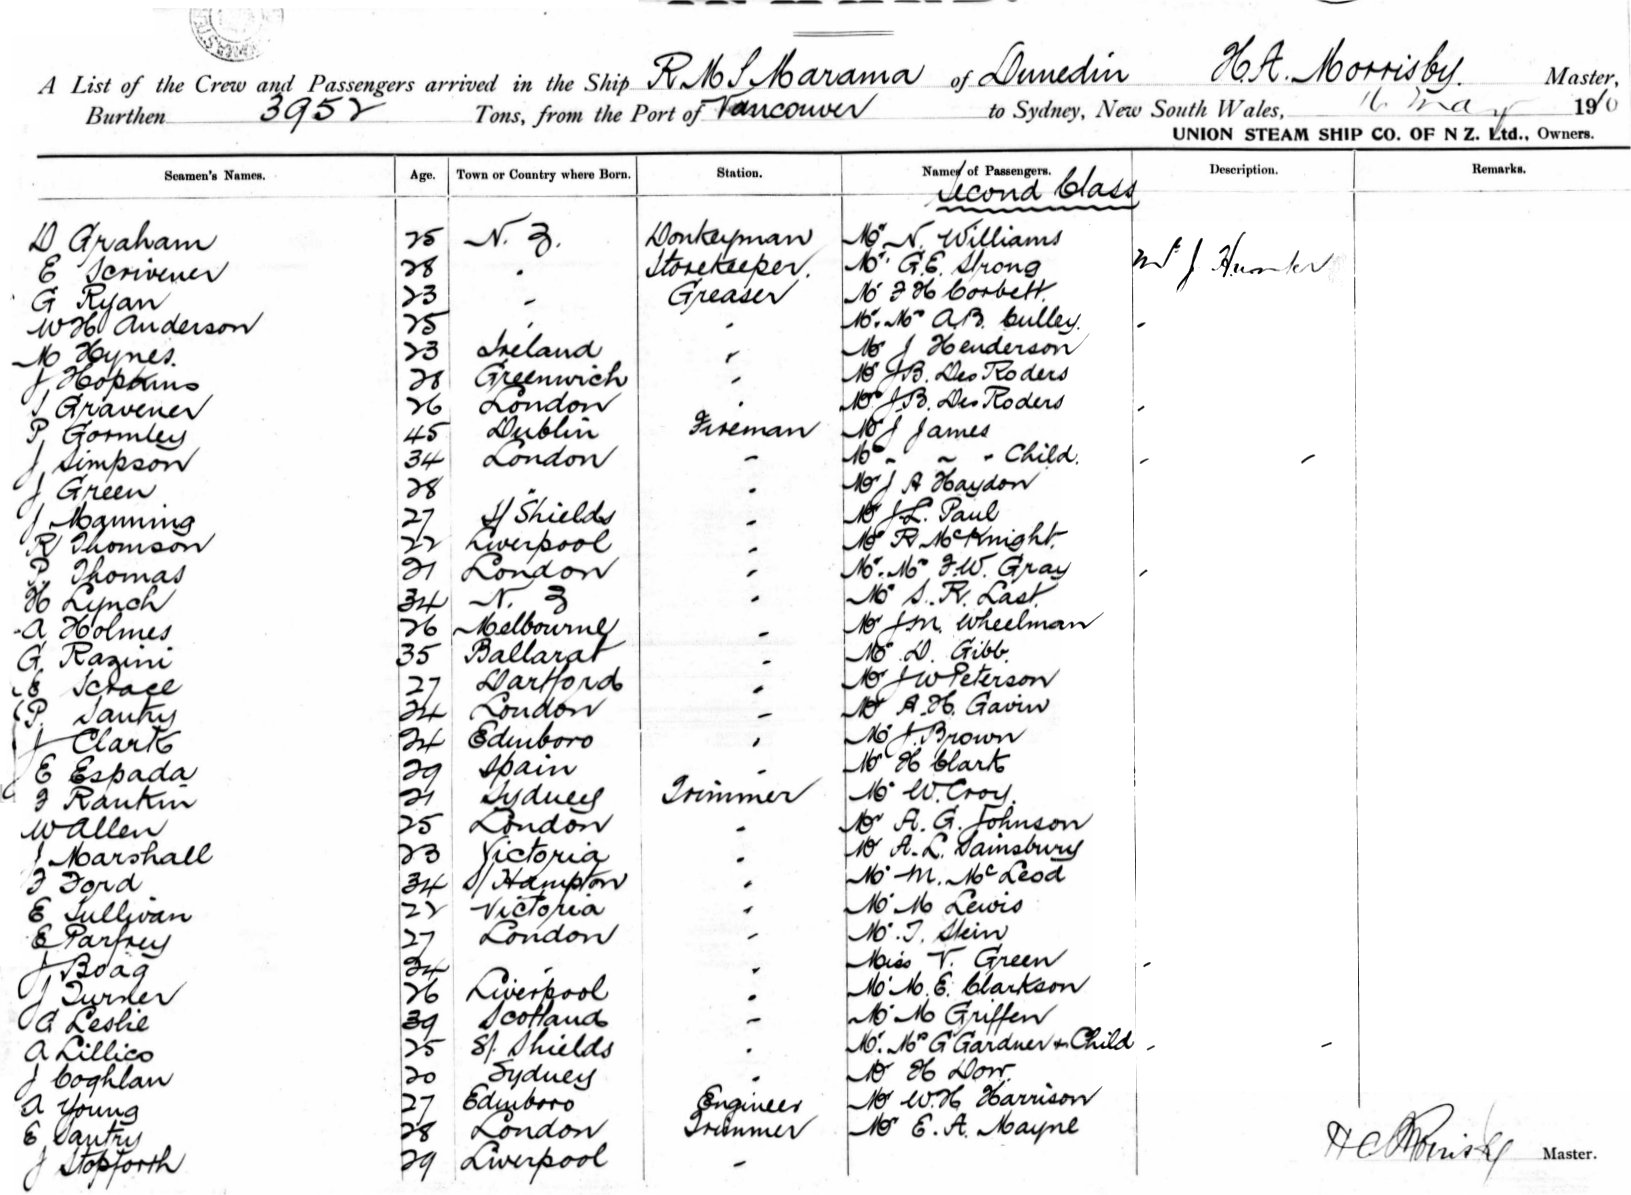 A List of the Crew and Passengers arrived in the Ship R M S Marama of Dunedin H.A. Morrisby. Master,
Burthen 3952 Tons, from the Port of Vancouver to Sydney, New South Wales, 16 May 1910
UNION STEAM SHIP CO. OF N Z. Ltd., Owners.
Seamen's Names. Age. Town or Country where Born. Station. Names of Passengers. Description. Remarks.
Second Class
D Graham 25 N. Z. Donkeyman Mr. N. Williams
E Scrivener 28 " Storekeeper. Mr G.E. Strong Mr J Hunter
G Ryan 23 " Greaser Mr F H Corbett.
W H Anderson 25 " " Mr. Mrs A.B. Culley.
M Hynes. 23 Ireland " Mr J Henderson
J Hopkins 28 Greenwich " Mr J B. Des Roders
J Gravener 26 London " Mrs J B. Des Roders
P. Gormley 45 Dublin Fireman Mr J James
J Simpson 34 London " Mr " " " Child.
J Green 28 " " Mr J A Haydon
J Manning 27 S/ Shields " Mr J.L. Paul
R Thomson 22 Liverpool " Mr R McKnight.
P. Thomas 21 London " Mr. Mrs F.W. Gray
H Lynch 34 N. Z " Mr S. R. Last.
A Holmes 26 Melbourne " Mr J.M. Wheelman
G. Razini 35 Ballarat " Mr D. Gibb.
E Scrace 27 Dartford " Mr J W Peterson
P. Santry 24 London " Mr A.H. Gavin
J Clark 24 Edinboro " Mr J. Brown
E Espada 29 Spain " Mr H Clark
F Rankin 21 Sydney Trimmer Mr W. Croy.
W Allen 25 London " Mr A. G. Johnson
J Marshall 23 Victoria " Mr A. L. Sainsbury
F Ford 34 S/ Hampton " Mr M. McLeod
E Sullivan 22 Victoria " Mr M Lewis
E Parfrey 27 London " Mr. T. Stein
J Boag 24 " " Miss V. Green
J Turner 26 Liverpool " Mr M. E. Clarkson
G Leslie 39 Scotland " Mr M Griffen
A Lillico 25 S/. Shields " Mr. Mrs G Gardner & Child
J Coghlan 20 Sydney " Mr H Dow.
A Young 27 Edinboro Engineer Mr W.H Harrison
E Santry 28 London Trimmer Mr E. A. Mayne
J Stopforth 29 Liverpool "
Master.